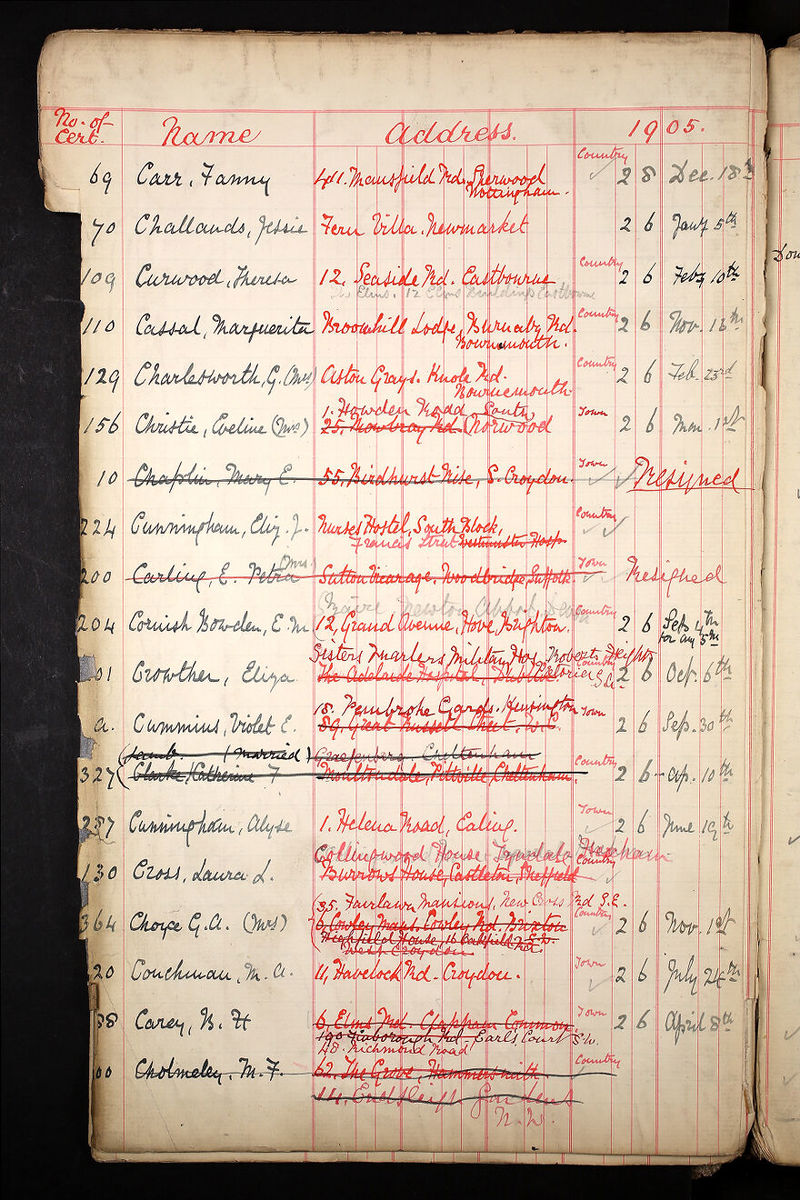 No. of Cert. Name Address. 1905.
69 Carr, Fanny 41. Mansfield Rd. Sherwood Country 2 8 Dec. 18th
Nottingham.
70 Challands, Jessie Fern Villa. Newmarket 2 6 Jany 5th
109 Curwood, Theresa 12. Seaside Rd. Eastbourne Country 2 6 Feby 10th
Elms. 12 Elms Buildings Eastbourne
110 Cassal, Marguerita Broomhill Lodge, Burnaby Rd. Country 2 6 Nov. 13th
Bournemouth.
129 Charlesworth, G. (Mrs) Aston Grays. Knole Rd. Country 2 6 Feb. 23rd
Bournemouth
1. Howden Road, South
156 Christie, Eveline (Mrs) 25. Mowbray Rd. Norwood Town 2 6 Mar. 1st
10 Chaplin, Mary E. 55, Birdhurst Rise, S. Croydon. Town Resigned
224 Cunningham, Eliz. J. Nurses Hostel, South Block, Country
Francis Street Westminster Hosp.
200 Carling, E. Petra (Mrs.) Sutton Vicarage, Woodbridge, Suffolk. Town Resigned
Newton Abbot, Devon
204 Cornish Bowden, E. M 12, Grand Avenue, Hove, Brighton. Country 2 6 Sep 4th
for aug 5th
Sisters Quarters Military Hos. Roberts Heights
01 Crowther, Eliza The Adelaide Hospital Dublin Pretoria S.A. Country 2 6 Oct. 6th
18. Pembroke Gards. Kensington
a. Cummins, Violet E. 89, Great Russell Street, W.C. Town 2 6 Sep. 30th
Lamb (Married) Graefenberg Cheltenham
327 Clarke, Katherine F Moultondale, Pittville, Cheltenham. Country 2 6 Ap. 10th
287 Cunningham, Alyse 1. Helena Road, Ealing. Town 2 6 June 19th
Collingwood House Tyndale Hexham
130 Cross, Laura L. Burrows House, Castleton, Sheffield Country
35, Fairlawn Mansions, New Cross Rd S.E.
364 Choyce G.A. (Mrs) 6, Cowley Mans. Cowley Rd. Brixton Country 2 6 Nov. 1st
Highfield House, 16 Rd. S.W.
West Croydon
20 Couchman, M. A. 11, Havelock Rd. Croydon. Town 2 6 July 24th
88 Carey, B. H 6, Elms Rd. Clapham Common, Town 2 6 April 8th
190 Finborough Rd. Earls Court S.W.
48. Richmond Road
00 Cholmeley, M. F. 62. The Grove, Hammersmith. Country
14. Endsleigh Gardens
N.W.